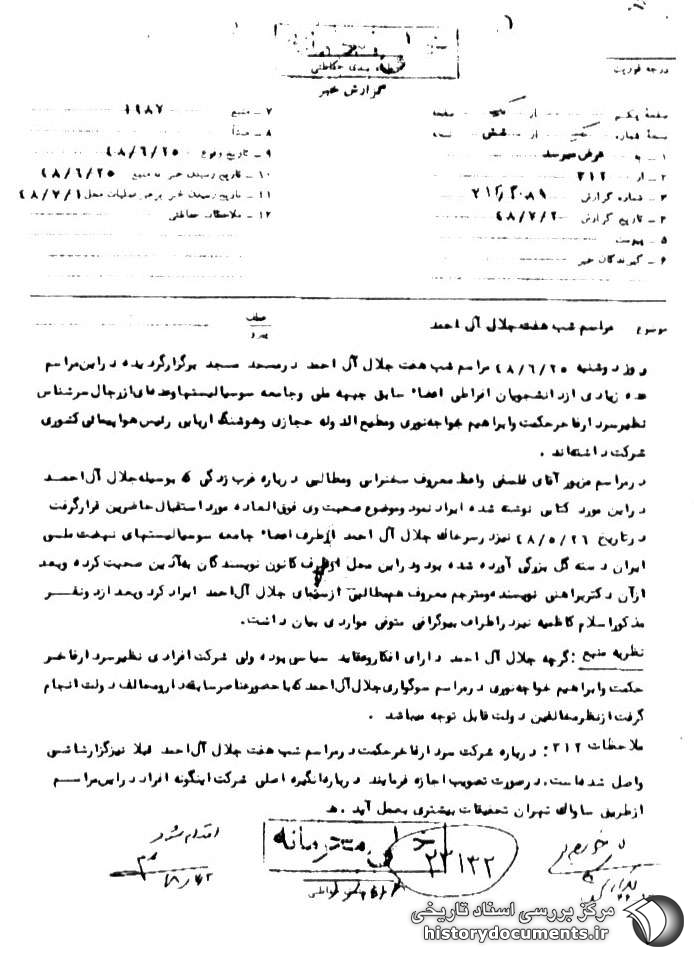 طبقه بندی حفاظتی
گزارش خبر
درجه فوریت
صفحهٔ یکم از یک صفحه
نسخهٔ شماره یک از شش نسخه
۱ - به عرض میرسد
۲ - از ۳۱۲
۳ - شماره گزارش
۴ - تاریخ گزارش ۴۸/۷/۲
۵ - پیوست
۶ - گیرندگان خبر
۷ - منبع ۱۹۸۷
۸ - منشأ
۹ - تاریخ وقوع ۴۸/۶/۲۵
۱۰ - تاریخ رسیدن خبر به منبع ۴۸/۶/۲۵
۱۱ - تاریخ رسیدن خبر برهبر عملیات محل ۴۸/۷/۱
۱۲ - ملاحظات حفاظتی
موضوع مراسم شب هفت جلال آل احمد
عطف
پیرو
روز دوشنبه ۴۸/۶/۲۵ مراسم شب هفت جلال آل احمد در مسجد برگزار گردیده در این مراسم
عده زیادی از دانشجویان افراطی اعضاء سابق جبهه ملی وجامعه سوسیالیستها وعده‌ای از رجال سرشناس
نظیر سردار فاخر حکمت وابراهیم خواجه‌نوری ومطیع الدوله حجازی وهوشنگ اربابی رئیس هواپیمائی کشوری
شرکت داشته‌اند .
در مراسم مزبور آقای فلسفی واعظ معروف سخنرانی ومطالبی درباره غرب زدگی که بوسیله جلال آل احمد
در این مورد کتابی نوشته شده ایراد نمود وموضوع صحبت وی فوق العاده مورد استقبال حاضرین قرار گرفت
در تاریخ ۴۸/۵/۲۶ نیز در سر خاک جلال آل احمد از طرف اعضاء جامعه سوسیالیستهای نهضت ملی
ایران دسته گل بزرگی آورده شده بود ودر این محل از طرف کانون نویسندگان به‌آذین صحبت کرده وبعد
از آن دکتر براهنی نویسنده ومترجم معروف هم مطالبی از جلال آل احمد ایراد کرد وبعد از دونفر
مذکور اسلام کاظمیه نیز در اطراف بیوگرافی متوفی مواردی بیان داشت.
نظریه منبع : گرچه جلال آل احمد دارای افکار وعقاید سیاسی بوده ولی شرکت افرادی نظیر سردار فاخر
حکمت وابراهیم خواجه‌نوری در مراسم سوگواری جلال آل احمد که با حضور عناصر سابقه‌دار ومخالف دولت انجام
گرفت از نظر مخالفین دولت قابل توجه میباشد .
ملاحظات ۳۱۲ : درباره شرکت سردار فاخر حکمت در مراسم شب هفت جلال آل احمد قبلا نیز گزارشاتی
واصل شده‌است، در صورت تصویب اجازه فرمایند درباره انگیزه اصلی شرکت اینگونه افراد در این مراسم
از طریق ساواک تهران تحقیقات بیشتری بعمل آید . ه
خیلی محرمانه
۲۳۱۳۲
اقدام شود
مرکز بررسی اسناد تاریخی
historydocuments.ir